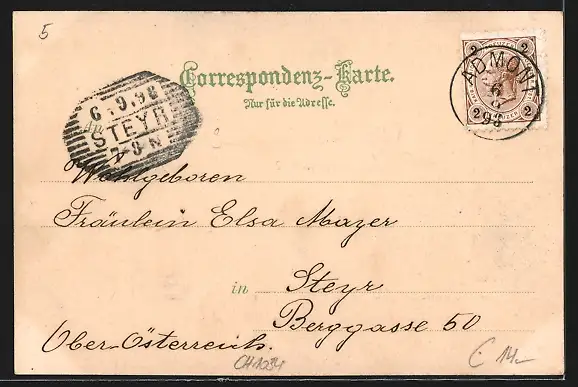 5
Correspondenz-Karte.
Nur für die Adresse.
2 2
ADMONT
6
9
98
2 2
6.9.98
STEYR
7-8 N
Wohlgeboren
Fräulein Elsa Mayer
in Steyr
Berggasse 50
Ober-Österreich.
CH1234
€ 14.-